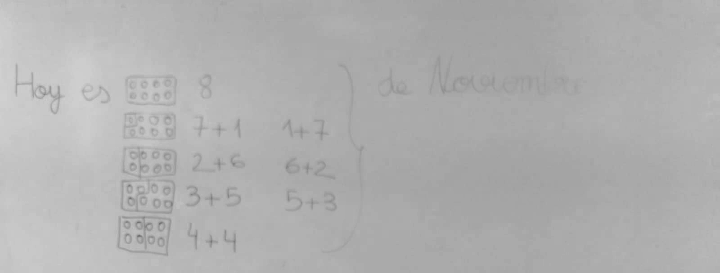 Hoy es 8 de Noviembre
7+1 1+7
2+6 6+2
3+5 5+3
4+4